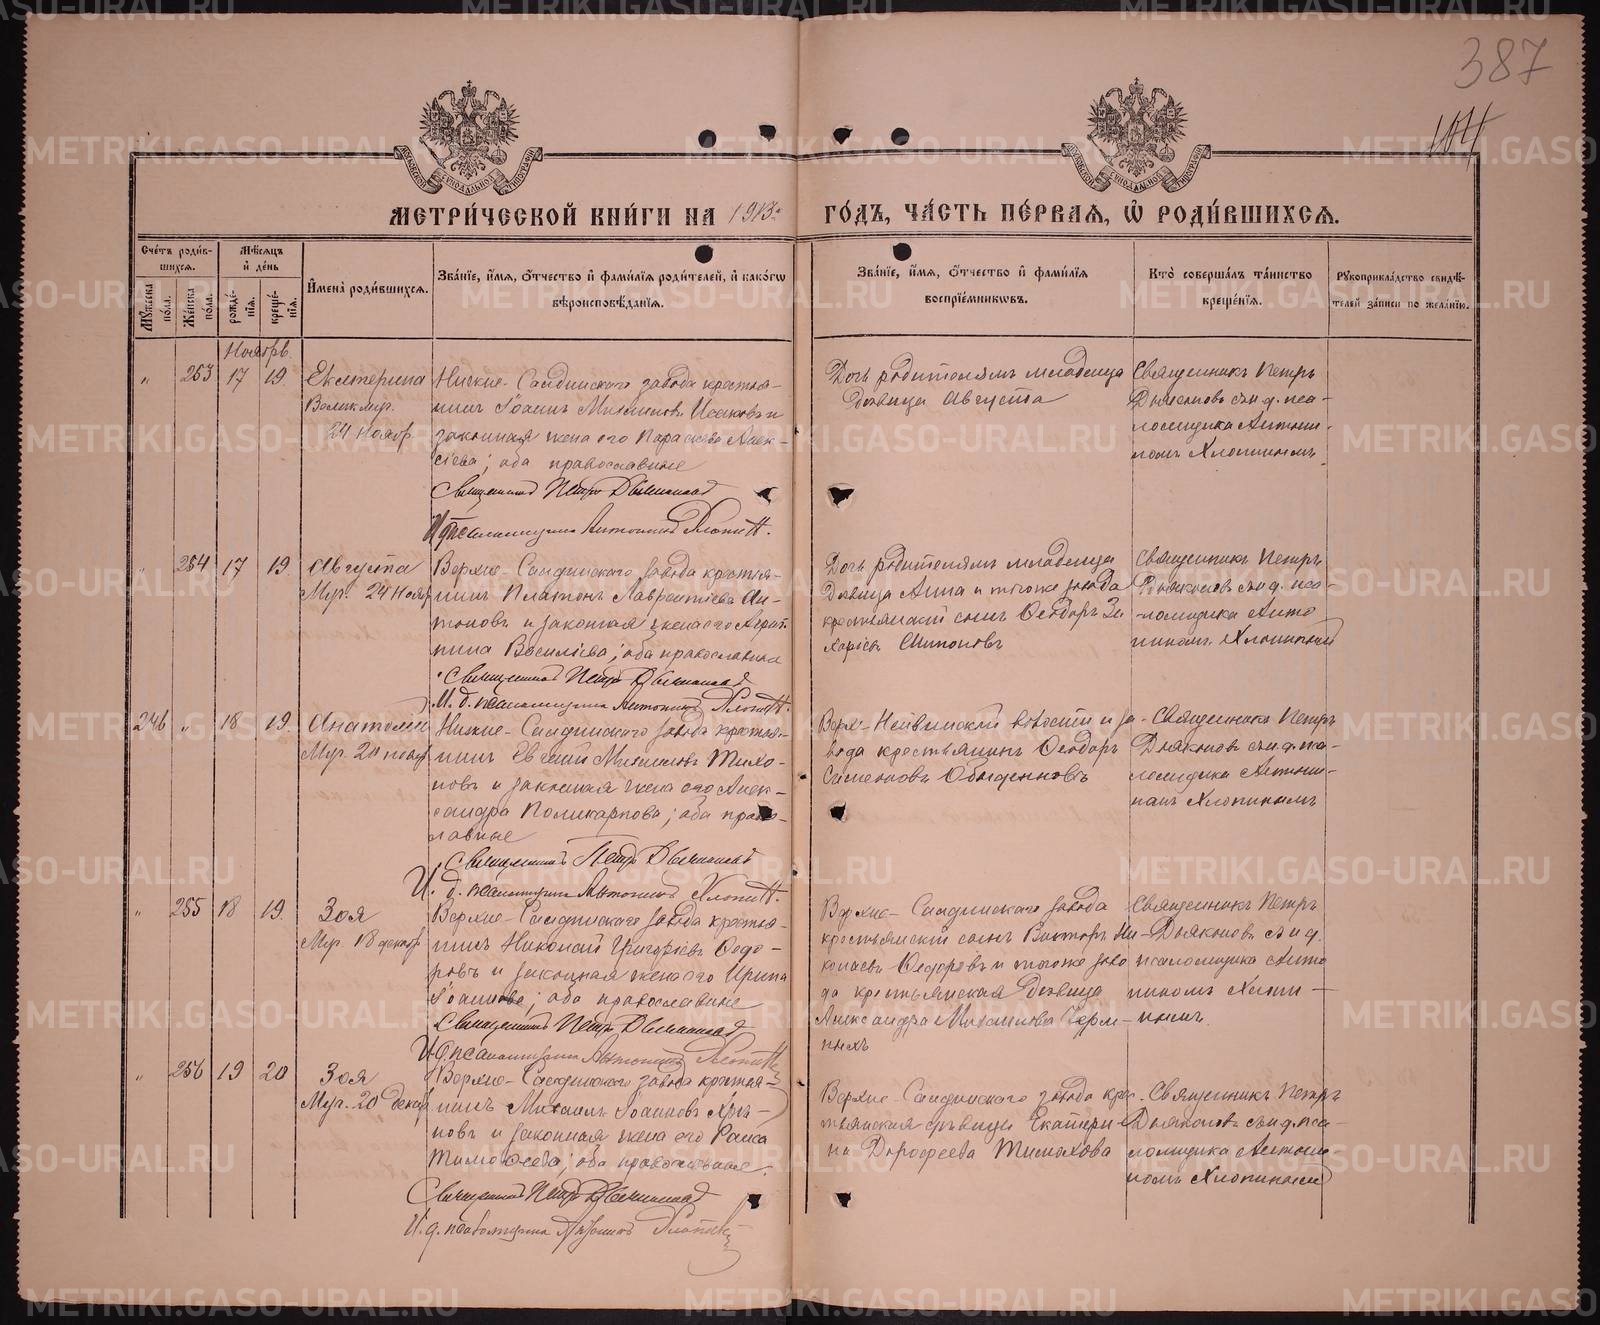 387
104
МОСКОВСКОЙ СѴНОДАЛЬНОЙ ТИПОГРАФІИ
МОСКОВСКОЙ СѴНОДАЛЬНОЙ ТИПОГРАФІИ
МЕТРИ́ЧЕСКОЙ КНИ́ГИ НА 1913 ГО́ДЪ, ЧА́СТЬ ПЕ́РВАЯ, Ѽ РОДИ́ВШИХСЯ.
Сче́тъ роди́вшихся.
Му́жеска пола.
Же́нска пола.
Мѣ́сяцъ и де́нь
рожде́нія.
креще́нія.
И́мена̀ роди́вшихся.
Зва́ніе, и́мя, ѻ́тчество и фами́лія роди́телей, и како́гѡ вѣроисповѣ́данія.
Зва́ніе, и́мя, ѻ́тчество и фами́лія воспріе́мниковъ.
Кто̀ соверша́лъ та́инство креще́нія.
Рꙋкоприкла́дство свидѣ́телей за́писи по жела́нію.
Ноябрь
" 253 17 19.
Екатерина
Великмуч.
24 Ноябр.
Нижне-Салдинскаго завода крестья-
нинъ Іоаннъ Михаиловъ Исаковъ и
законная жена его Параскева Алек-
сіева; оба православные
Священникъ Петръ Дьяконовъ
И. д. псаломщика Антонинъ Хлопинъ.
Дочь родителямъ младенца
дѣвица Августа
Священникъ Петръ
Дьяконовъ съ и.д. пса-
ломщика Антони-
номъ Хлопинымъ
254 17 19
Августа
Муч. 24 Нояб
Верхне-Салдинскаго завода крестья-
нинъ Платонъ Лаврентіевъ Ан-
тоновъ и законная жена его Агрип-
пина Василіева; оба православные
Священникъ Петръ Дьяконовъ
И. д. псаломщика Антонинъ Хлопинъ.
Дочь родителямъ младенца
дѣвица Анна и тогоже завода
крестьянскій сынъ Ѳеодоръ За
харіевъ
Священникъ Петръ
Дьяконовъ съ и.д. пса
-ломщика Анто
ниномъ Хлопинымъ
246 " 18 19.
Анатолій
Муч. 20 нояб
Нижне-Салдинскаго завода крестья-
нинъ Евгеній Михаиловъ Тихо-
новъ и законная жена его Алек-
сандра Поликарпова; оба право-
славные
Священникъ Петръ Дьяконовъ
И. д. псаломщика Антонинъ Хлопинъ.
Верх-Нейвинской волости и за-
вода крестьянинъ Ѳеодоръ
Симеоновъ Обыденновъ
Священникъ Петръ
Дьяконовъ съ и.д. пса-
ломщика Антони-
номъ Хлопинымъ
" 255 18 19.
Зоя
Муч. 18 декаб
Верхне-Салдинскаго завода крестья-
нинъ Николай Григоріевъ Ѳедо-
ровъ и законная жена его Ирина
Іоаннова; оба православные
Священникъ Петръ Дьяконовъ
И. д. псаломщика Антонинъ Хлопинъ
Верхне-Салдинскаго завода
крестьянскій сынъ Викторъ Ни-
колаевъ Ѳедоровъ и тогоже заво
да крестьянская дѣвица
Александра Михаилова Черм-
ныхъ
Священникъ Петръ
Дьяконовъ съ и.д.
псаломщика Анто
ниномъ Хлопи-
нымъ.
" 256 19 20
Зоя
Муч. 20 декаб
Верхне-Салдинскаго завода крестья-
нинъ Михаилъ Іоанновъ
новъ и законная жена его Раиса
Тимоѳеева; оба православные.
Священникъ Петръ Дьяконовъ
И. д. псаломщика Антонинъ Хлопинъ
Верхне-Салдинскаго завода крес-
тьянская дѣвица Екатери-
на Дорофеева Тимахова
Священникъ Петръ
Дьяконовъ съ и.д. пса-
ломщика Антони-
номъ Хлопинымъ
METRIKI.GASO-URAL.RU